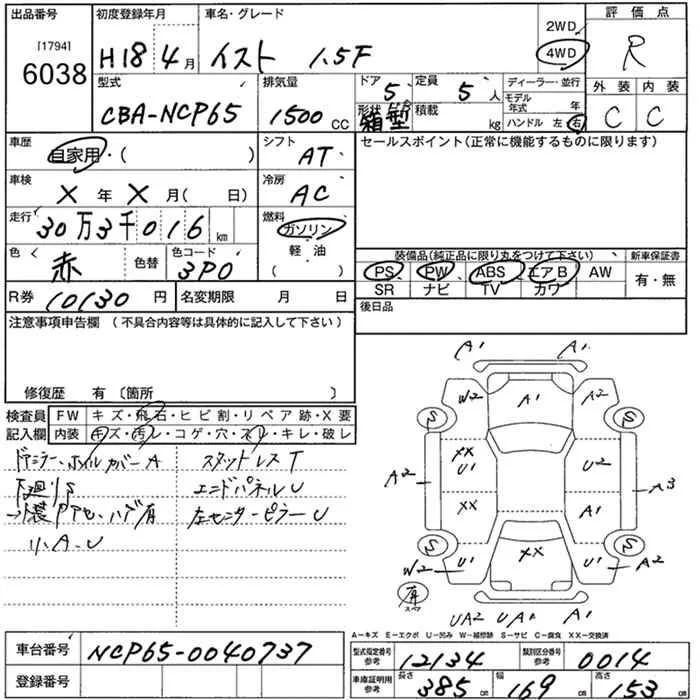 出品番号 初度登録年月 車名・グレード 2WD 評価点
[1794] 6038 H18年4月 イスト 1.5F 4WD R
型式 排気量 ドア 定員 ディーラー・並行 外装 内装
CBA-NCP65 1500cc 5 5人 モデル年式 年 C C
形状 HB 箱型 積載 kg ハンドル 左 右
車歴 シフト セールスポイント(正常に機能するものに限ります)
自家用・( ) AT
車検 冷房
X年X月( 日) AC
走行 燃料
30万3千016km ガソリン
色 色替 色コード 軽・油 装備品(純正品に限り丸をつけて下さい) 新車保証書
赤 3P0 ( ) PS PW ABS エアB AW 有・無
SR ナビ TV カワ
R券 10130円 名変期限 月 日 後日品
注意事項申告欄(不具合内容等は具体的に記入して下さい)
修復歴 有〔箇所 〕
検査員 FW キズ・飛石・ヒビ割・リペア跡・X要
記入欄 内装 キズ・汚レ・コゲ・穴・スレ・キレ・破レ
ドアミラー・ホイルカバーA スタットレスT
下廻りS エンドパネルU
ハゲ有 左センターピラーU
小A・U
A1 A1
W2 A1 A2
S S
A2 XX U1 U2 A3
XX A1
S XX S
W2 U1 U1 A2
有 スペア
UA2 UA1 A1
A−キズ E−エクボ U−凹み W−補修跡 S−サビ C−腐食 XX−交換済
車台番号 NCP65-0040737
登録番号
型式指定番号 参考 12134 類別区分番号 参考 0014
車庫証明用 参考 長さ 385cm 幅 169cm 高さ 153cm